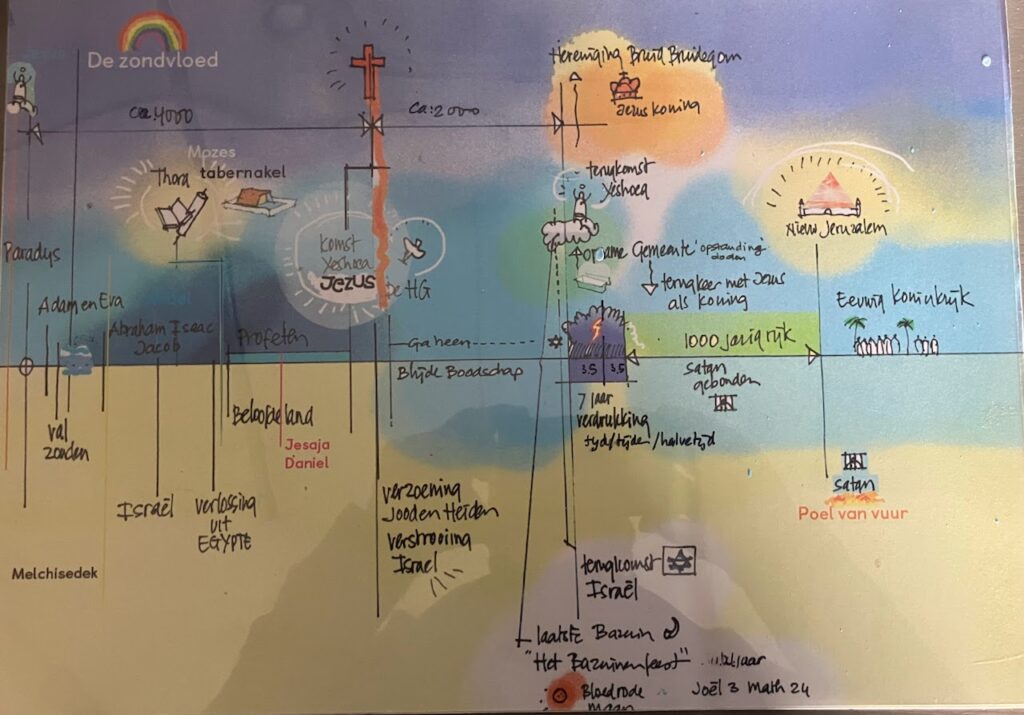 De zondvloed
Hereniging Bruid Bruidegom
Jezus koning
ca 4000
ca: 2000
Mozes
Thora
tabernakel
terugkomst
Yeshoea
Komst
Yeshoea
JEZUS
De HG
opname Gemeente 'opstanding
doden'
terugkeer met Jezus
als koning
Nieuw Jeruzalem
Paradys
Adam en Eva
Abraham Isaac
Jacob
Profeten
Ga heen
Blijde Boodschap
3,5
3,5
1000 jarig rijk
Eeuwig Koninkrijk
satan
gebonden
val
zonden
Beloofde land
Jesaja
Daniel
7 jaar
verdrukking
tyd/tijden/halve tijd
satan
Poel van vuur
Israël
verlossing
uit
EGYPTE
verzoening
Jooden Heiden
verstrooiing
Israel
Melchisedek
terugkomst
Israël
laatste Bazuin
"Het Bazuinenfeest"
jaar
Bloedrode
maan
Joël 3 Math 24